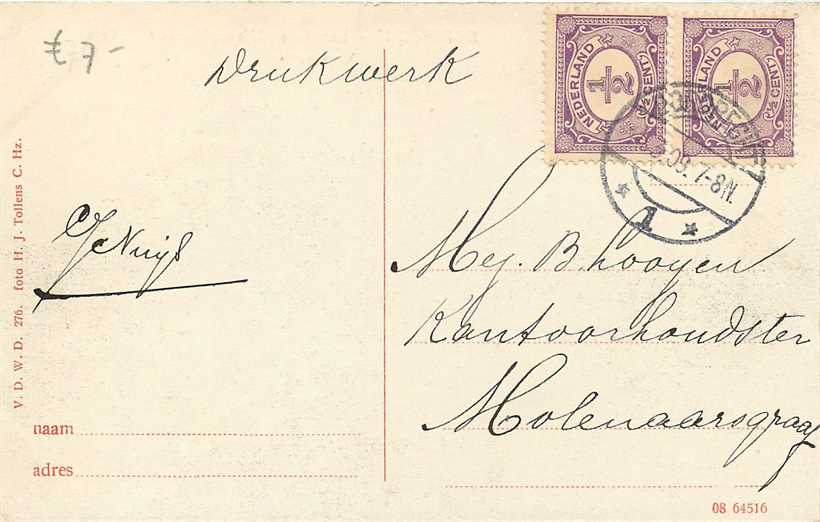 £ 7-
Drukwerk
NEDERLAND
1/2
(½ CENT)
NEDERLAND
1/2
(½ CENT)
DORDRECHT
09. 7-8N.
1
V. D. W. D. 276. foto H. J. Tollens C. Hz.
Mej. B. hooyen
Kantoorhoudster
Molenaarsgraaf
naam
adres
08 64516